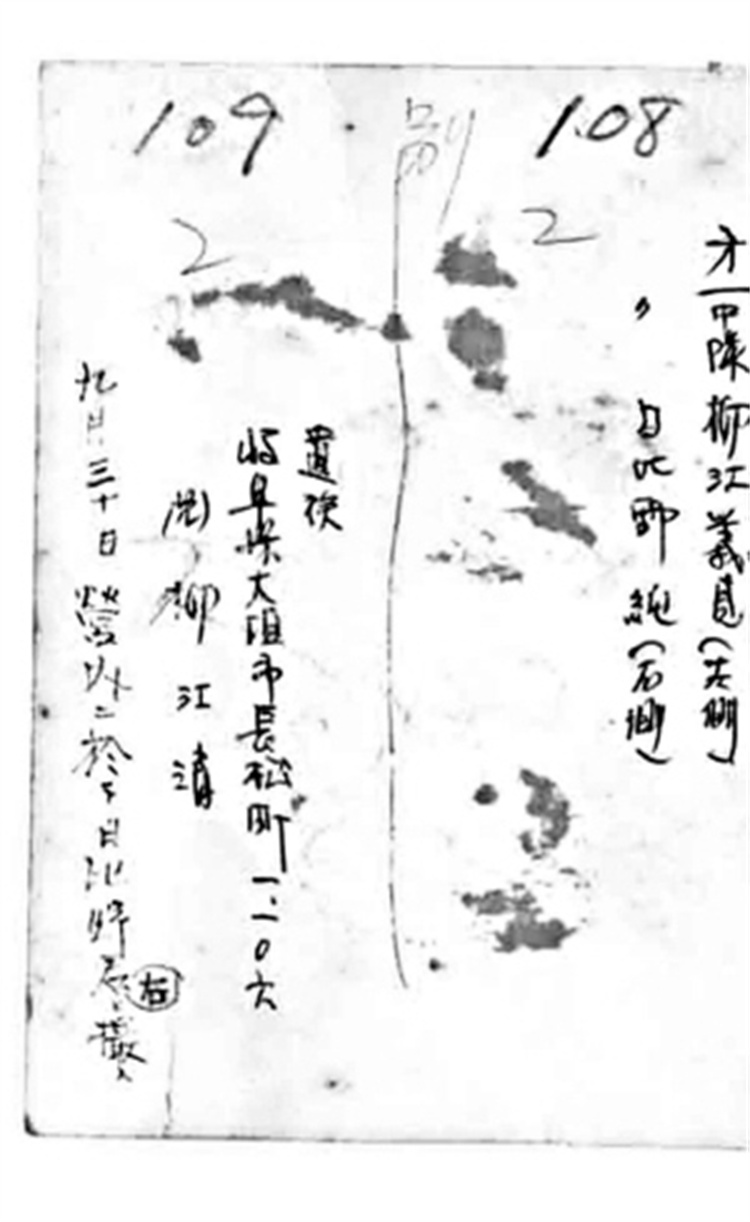 108
2
才一中隊 柳江義
〃 日比野 純(右側)
副
109
2
遺族
岐阜県大垣市長松町一、一〇六
(兄) 柳江 清
九月三十日 營外ニ於テ日比野君撮
右